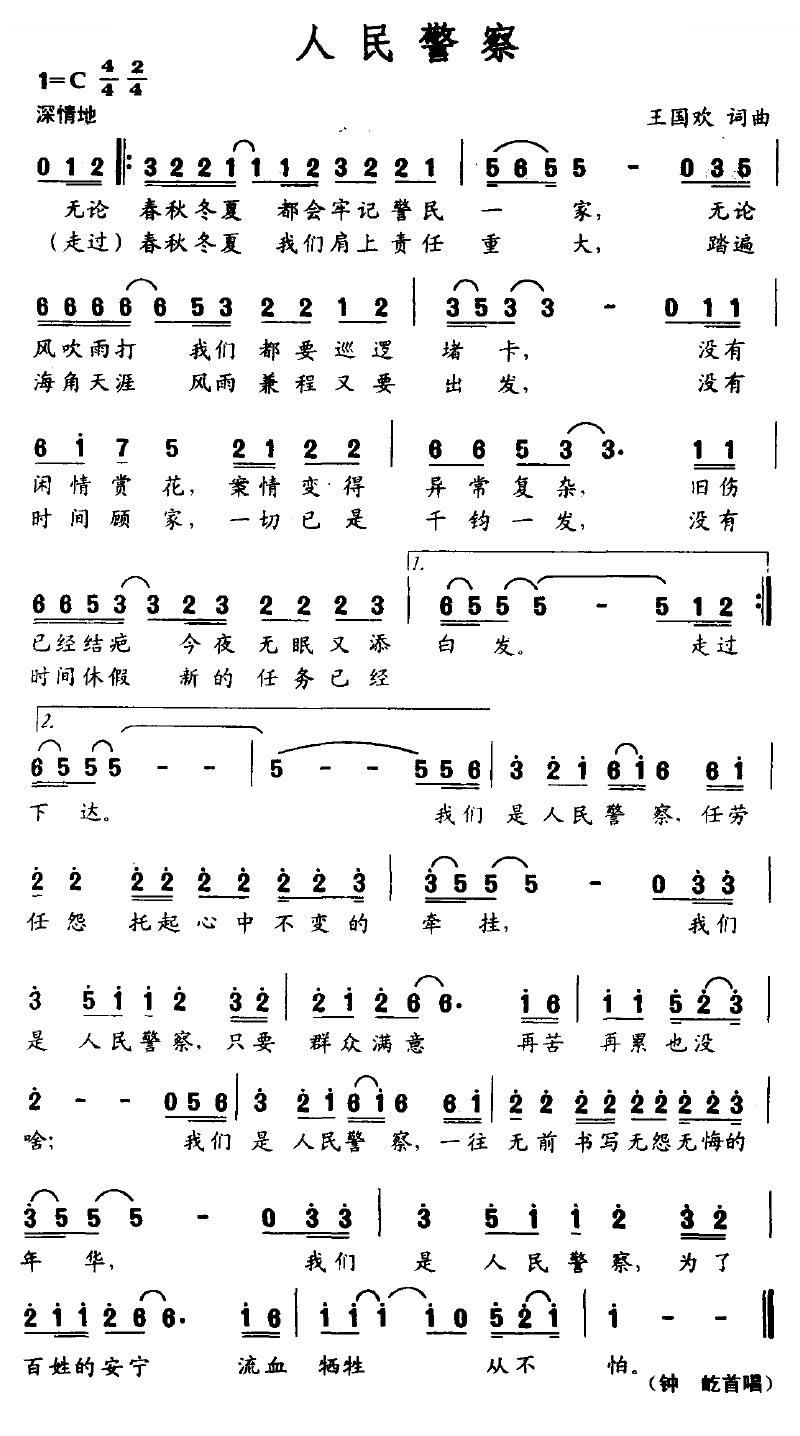 人民警察
1=C 4/4 2/4
深情地
王国欢 词曲
0 1 2 ‖: 3 2 2 1 1 1 2 3 2 2 1 | 5 6 5 5 - 0 3 5 |
无论 春秋冬夏 都会牢记警民 一 家, 无论
(走过) 春秋冬夏 我们肩上责任 重 大, 踏遍
6 6 6 6 6 5 3 2 2 1 2 | 3 5 3 3 - 0 1 1 |
风吹雨打 我们都要巡逻 堵 卡, 没有
海角天涯 风雨兼程又要 出 发, 没有
6 i 7 5 2 1 2 2 | 6 6 5 3 3. 1 1 |
闲情赏花, 案情变得 异常复杂, 旧伤
时间顾家, 一切已是 千钧一发, 没有
1.
6 6 5 3 3 2 3 2 2 2 3 | 6 5 5 5 - 5 1 2 :‖
已经结疤 今夜无眠又添 白 发。 走过
时间休假 新的任务已经
2.
6 5 5 5 - - | 5 - - 5 5 6 | 3̇ 2̇ i 6 i 6 6 i |
下 达。 我们是人民警察, 任劳
2̇ 2̇ 2̇ 2̇ 2̇ 2̇ 2̇ 2̇ 3̇ | 3̇ 5 5 5 - 0 3̇ 3̇ |
任怨 托起心中不变的 牵 挂, 我们
3̇ 5 i i 2̇ 3̇ 2̇ | 2̇ i 2̇ 6 6. i 6 | i i 5 2̇ 3̇ |
是 人民警察, 只要 群众满意 再苦 再累也没
2̇ - - 0 5 6 | 3̇ 2̇ i 6 i 6 6 i | 2̇ 2̇ 2̇ 2̇ 2̇ 2̇ 2̇ 3̇ |
啥; 我们是人民警察, 一往无前书写无怨无悔的
3̇ 5 5 5 - 0 3̇ 3̇ | 3̇ 5 i i 2̇ 3̇ 2̇ |
年 华, 我们 是 人民警察, 为了
2̇ i i 2̇ 6 6. i 6 | i i i i 0 5 2̇ i | i - - ‖
百姓的安宁 流血 牺牲 从不 怕。
(钟 屹首唱)